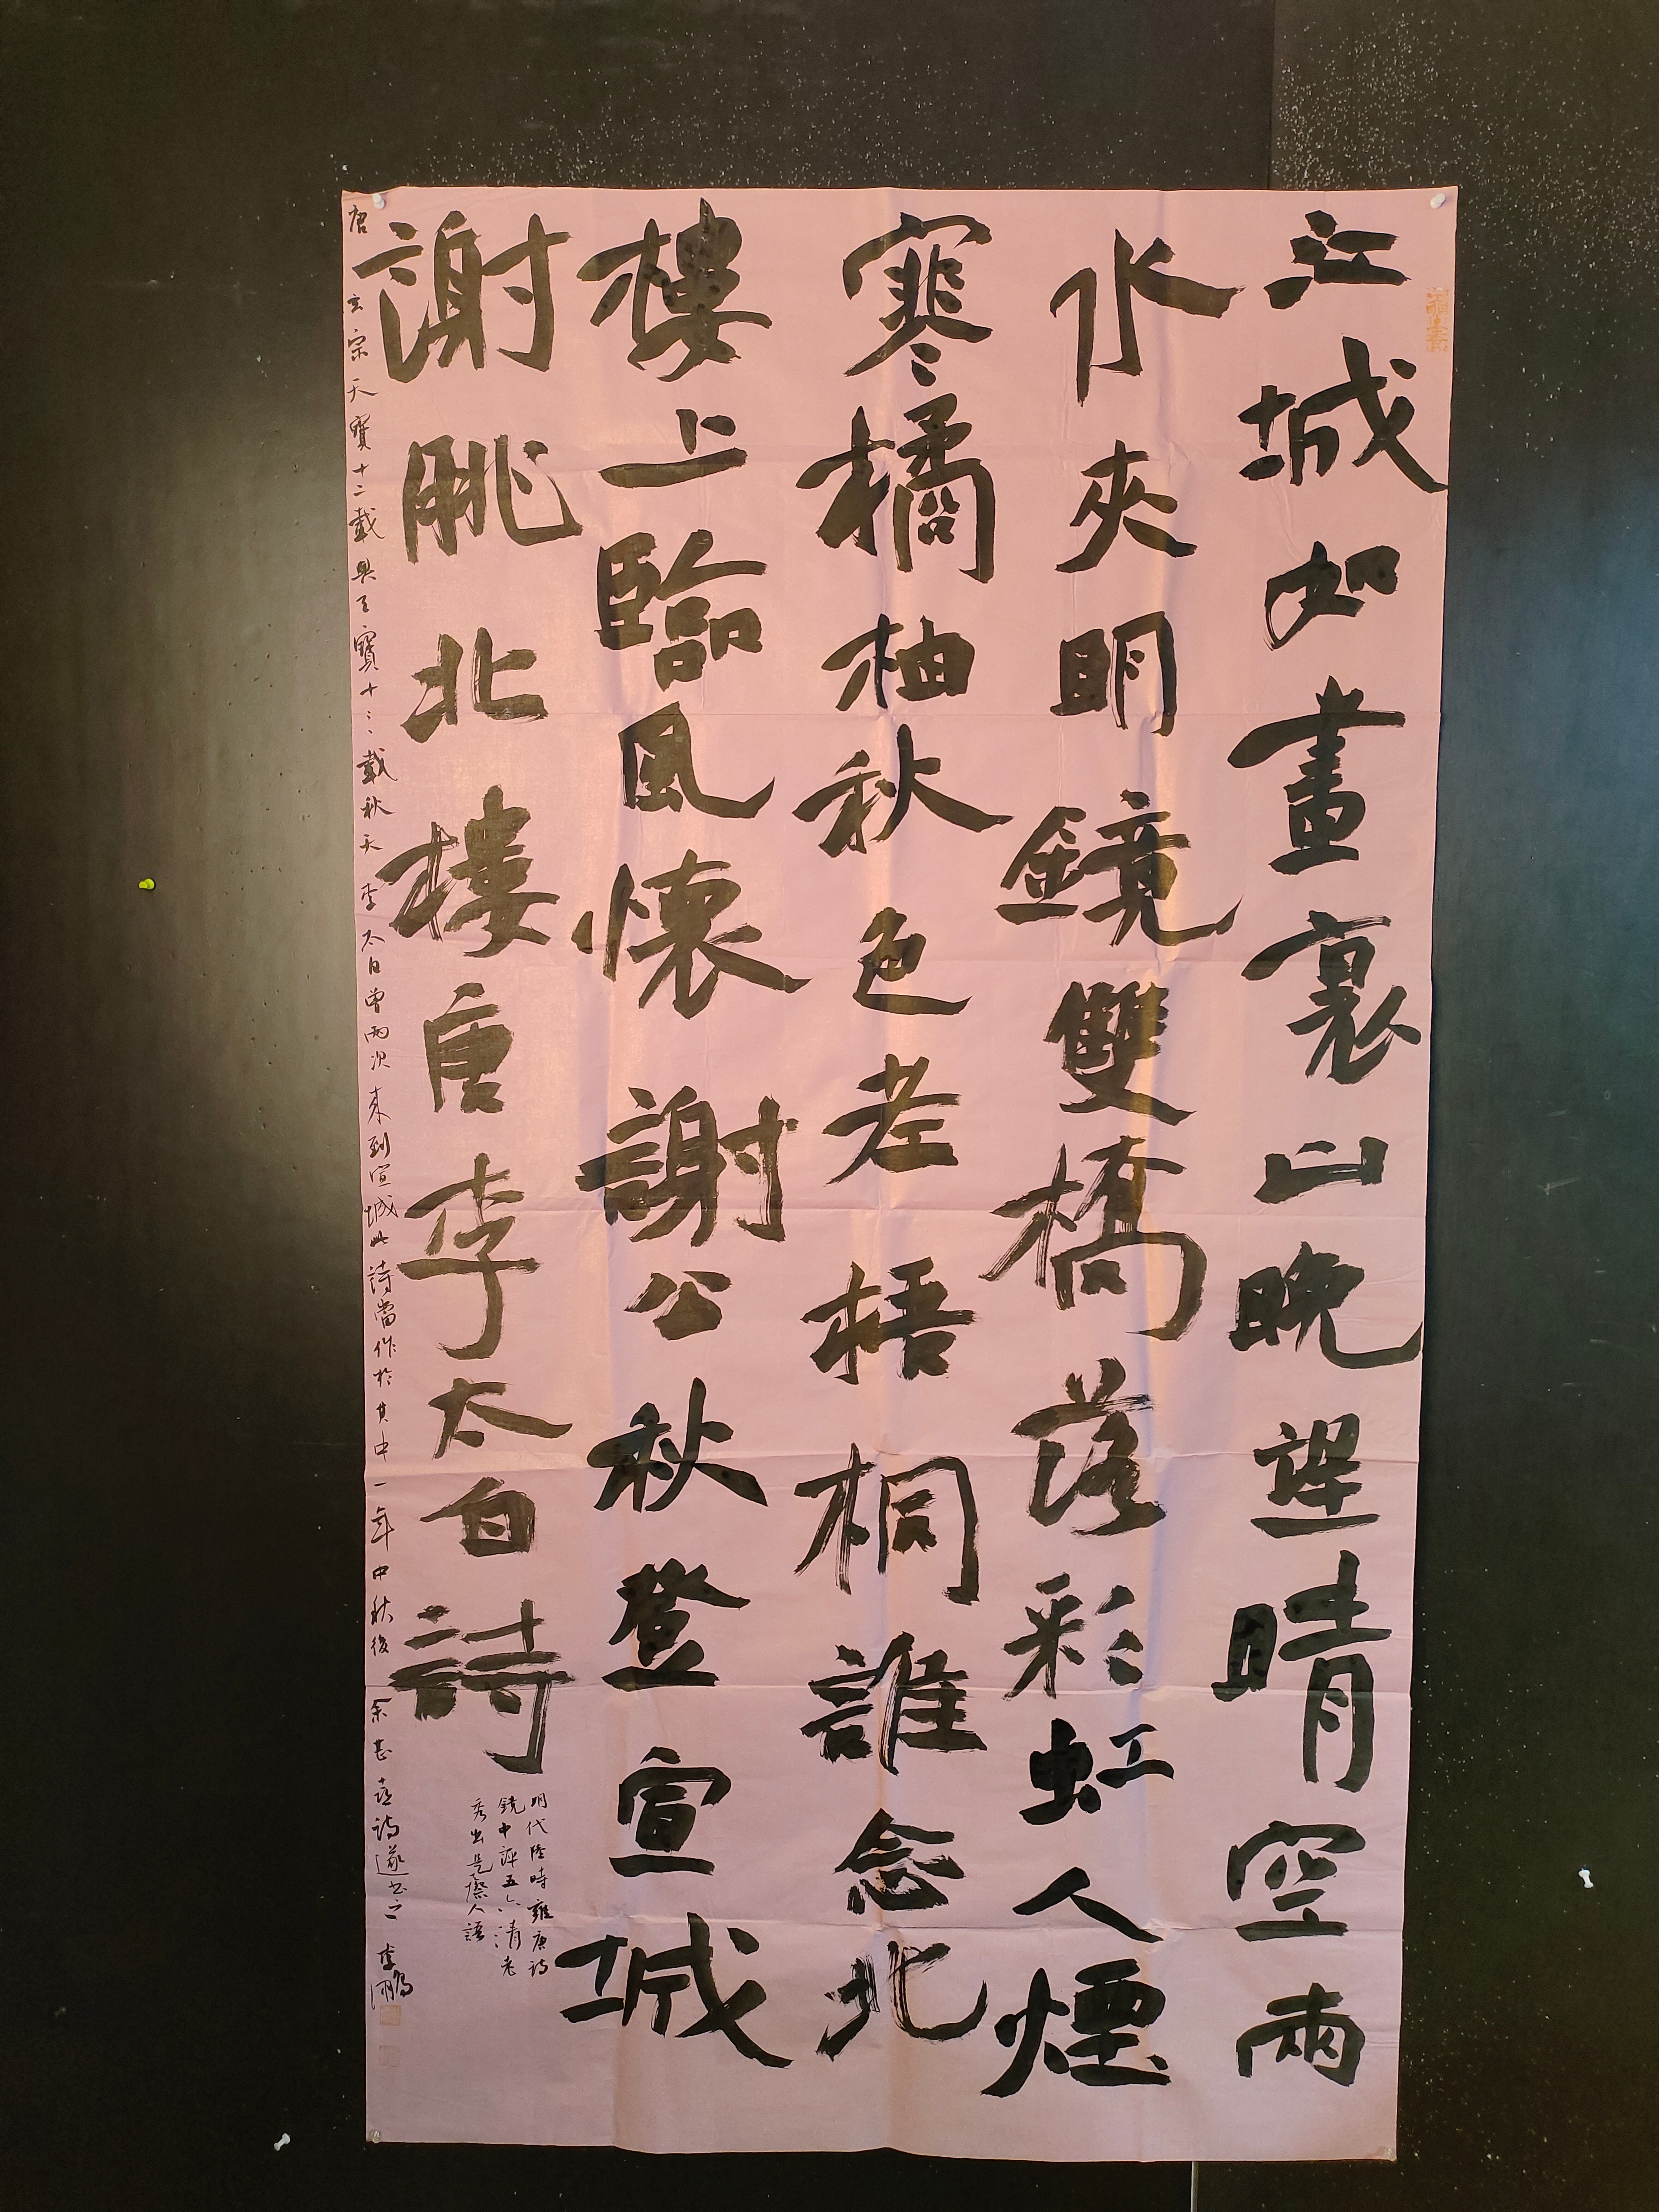 江城如畫裏山晚望晴空兩
水夾明鏡雙橋落彩虹人煙
寒橘柚秋色老梧桐誰念北
樓上臨風懷謝公秋登宣城
謝脁北樓唐李太白詩
明代陸時雍唐詩
鏡中評五六清老
秀出是際人語
唐玄宗天寶十二載與天寶十三載秋天李太白曾兩次來到宣城此詩當作於其中一年中秋後余甚喜詩遂書之李鵬